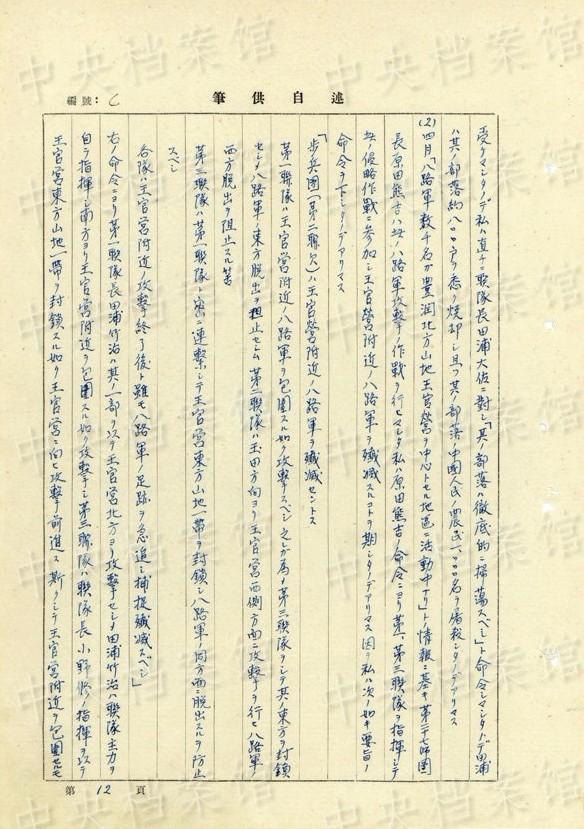 述自供筆
編號：
受ケマシタノデ私ハ直チニ聯隊長田浦大佐ニ對シ「其ノ部落ハ徹底的ニ掃蕩スベシ」ト命令シマシタノデ田浦
ハ其ノ部落約八〇〇戸ヲ悉ク焼却シ且ツ其ノ部落ノ中國人民ノ農民一、〇〇〇名ヲ屠殺シタノデアリマス
(2)四月「八路軍数千名カ豊潤北方山地王官營ヲ中心トセル地區ニ活動中ナリ」トノ情報ニ基キ第二十七師團
長原田熊吉ハ此ノ八路軍攻撃ノ作戰ヲ行ヒマシタ私ハ原田熊吉ノ命令ニヨリ第一、第三聯隊ヲ指揮シテ
此ノ侵略作戰ニ参加シ王官營附近ノ八路軍ヲ殲滅スルコトヲ期シタノデアリマス 因テ私ハ次ノ如キ要旨ノ
命令ヲ下シタノデアリマス
「歩兵團（第二聯欠）ハ王官營附近ノ八路軍ヲ殲滅セントス
第一聯隊ハ王官営附近ノ八路軍ヲ包囲スル如ク攻撃スベシ之レガ為メ第三聯隊ヲシテ其ノ東方ヲ封鎖
セシメ八路軍ノ東方脱出ヲ阻止セシム 第二聯隊ハ玉田方向ヨリ王官営西側方面ニ攻撃ヲ行ヒ八路軍ノ
西方脱出ヲ阻止スル筈
第三聯隊ハ第一聯隊ト密ニ連繋シテ王官営東方山地一帶ヲ封鎖シ八路軍ノ同方面ニ脱出スルヲ防止
スベシ
各隊ハ王官営附近ノ攻撃終了後ト雖モ八路軍ノ足跡ヲ急追シ捕捉殲滅スベシ」
右ノ命令ニヨリ第一聯隊長田浦竹治ハ其ノ一部ヲ以テ王官営北方ヨリ攻撃セシメ田浦竹治ハ聯隊主力ヲ
自ラ指揮シ南方ヨリ王官営附近ヲ包囲スル如ク攻撃シ第三聯隊ハ聯隊長小野修ノ指揮ヲ以テ
王官営東方山地一帶ヲ封鎖スル如ク王官営ニ向ヒ攻撃前進ス 斯クシテ王官営附近ヲ包囲セルモ
第 12 頁
中央档案馆